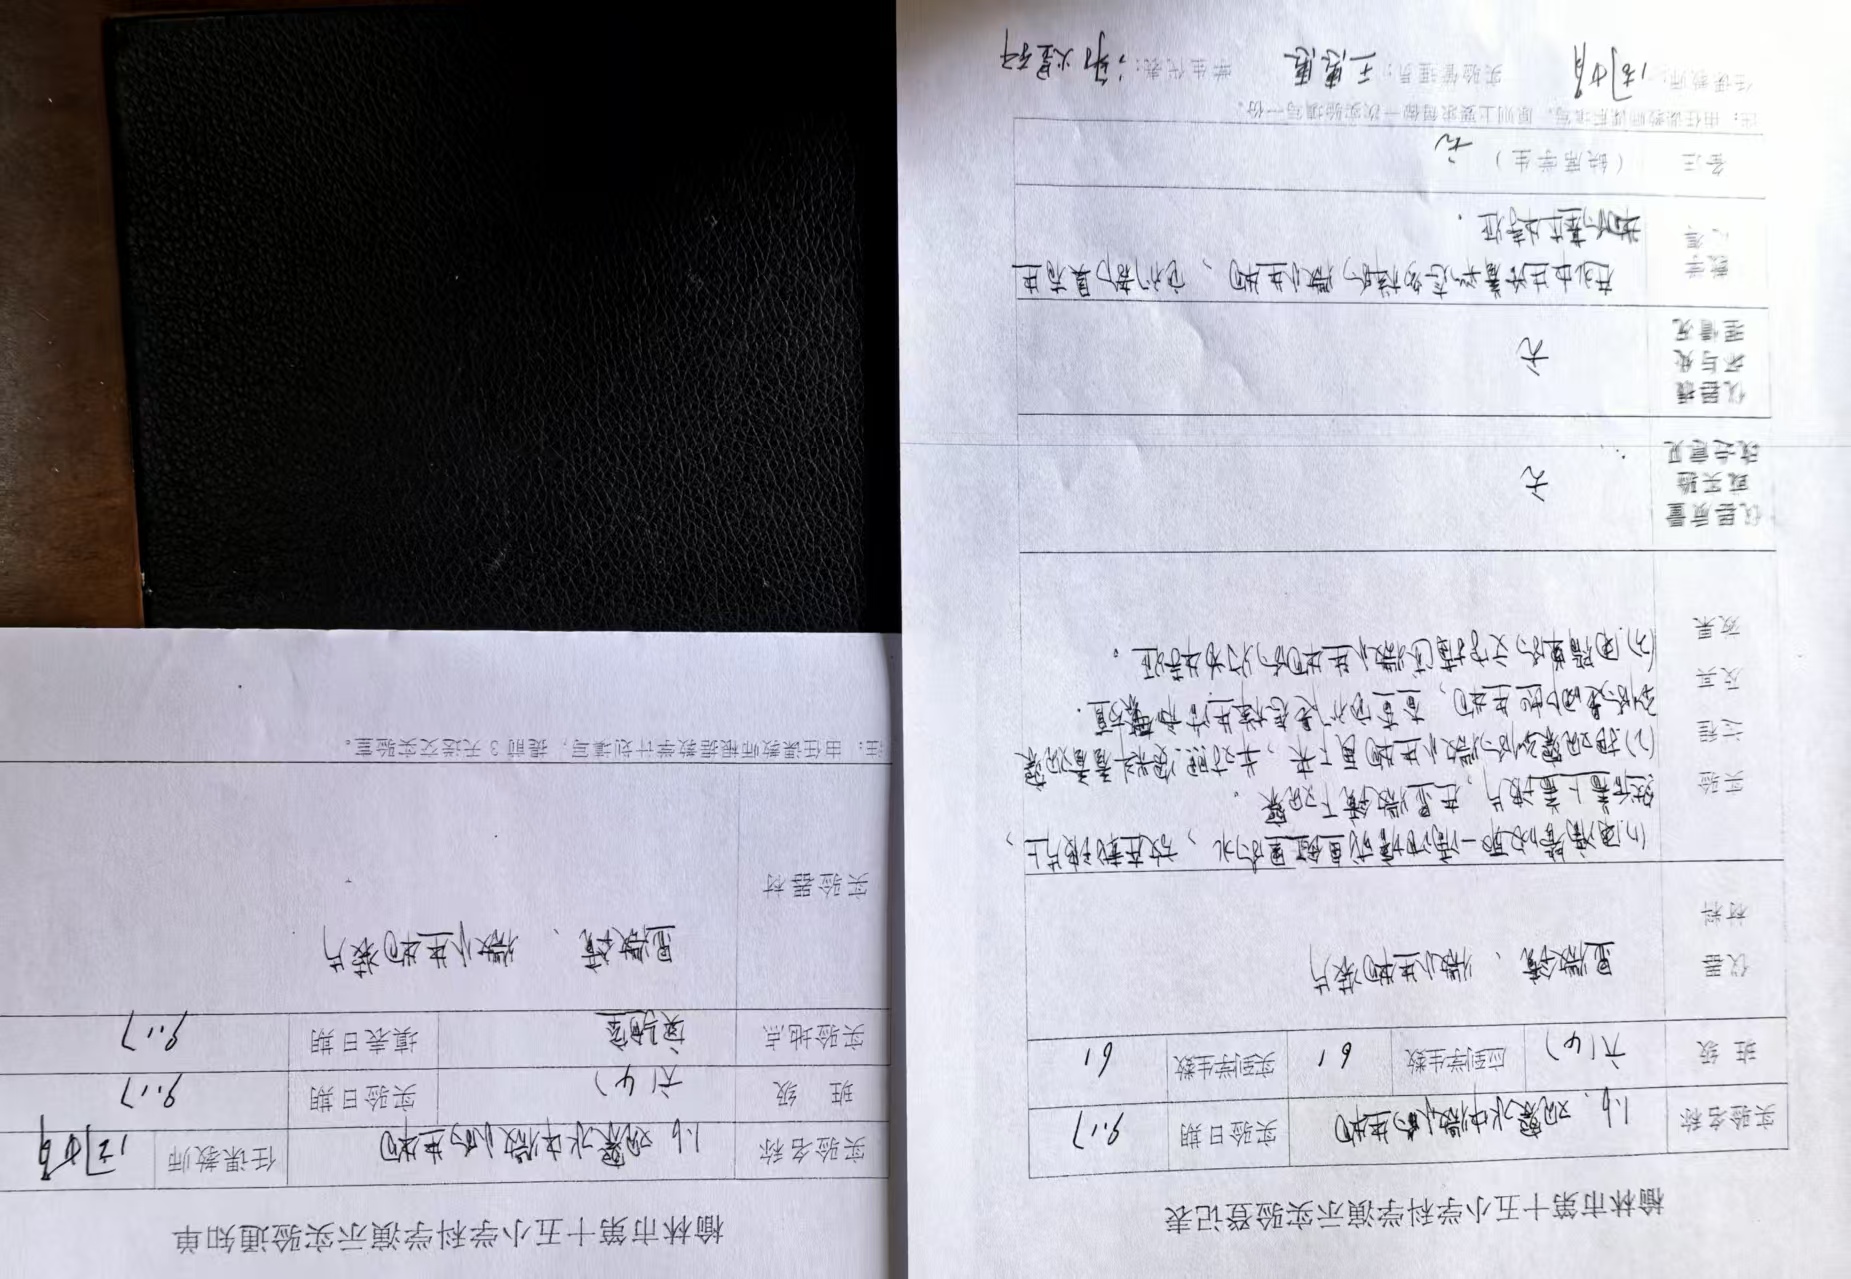 榆林市第十五小学科学演示实验登记表
实验名称 1.6、观察水中微小的生物 实验日期 9.17
班 级 六(4) 应到学生数 61 实到学生数 61
仪器 材料 显微镜、微小生物装片
实验 过程 及其 效果
(1).用滴管吸取一滴池塘或鱼缸里的水，放在载玻片上，
然后盖上盖玻片，在显微镜下观察。
(2)把观察到的微小生物画下来，并对照资料看看观察
到的是哪些生物，查查它们是怎样生活和繁殖.
(3).用简单的文字描述微小生物的行为特征。
仪器质量 或实验 改进意见 无
仪器损 坏与处 理情况 无
教学
在水中生活着形态多样的微小生物、它们都具有生
物的基本特征.
备注 (缺席学生) 无
注：由任课教师课后填写，原则上要求每做一次实验填写一份。
任课教师： 实验管理员：王惠惠 学生代表：
榆林市第十五小学科学演示实验通知单
实验名称 1.6 观察水中微小的生物 任课教师
班 级 六(4) 实验日期 9.17
实验地点 实验室 填表日期 9.17
实验器材 显微镜、微小生物装片
注：由任课教师根据教学计划填写，提前 3 天送交实验室。